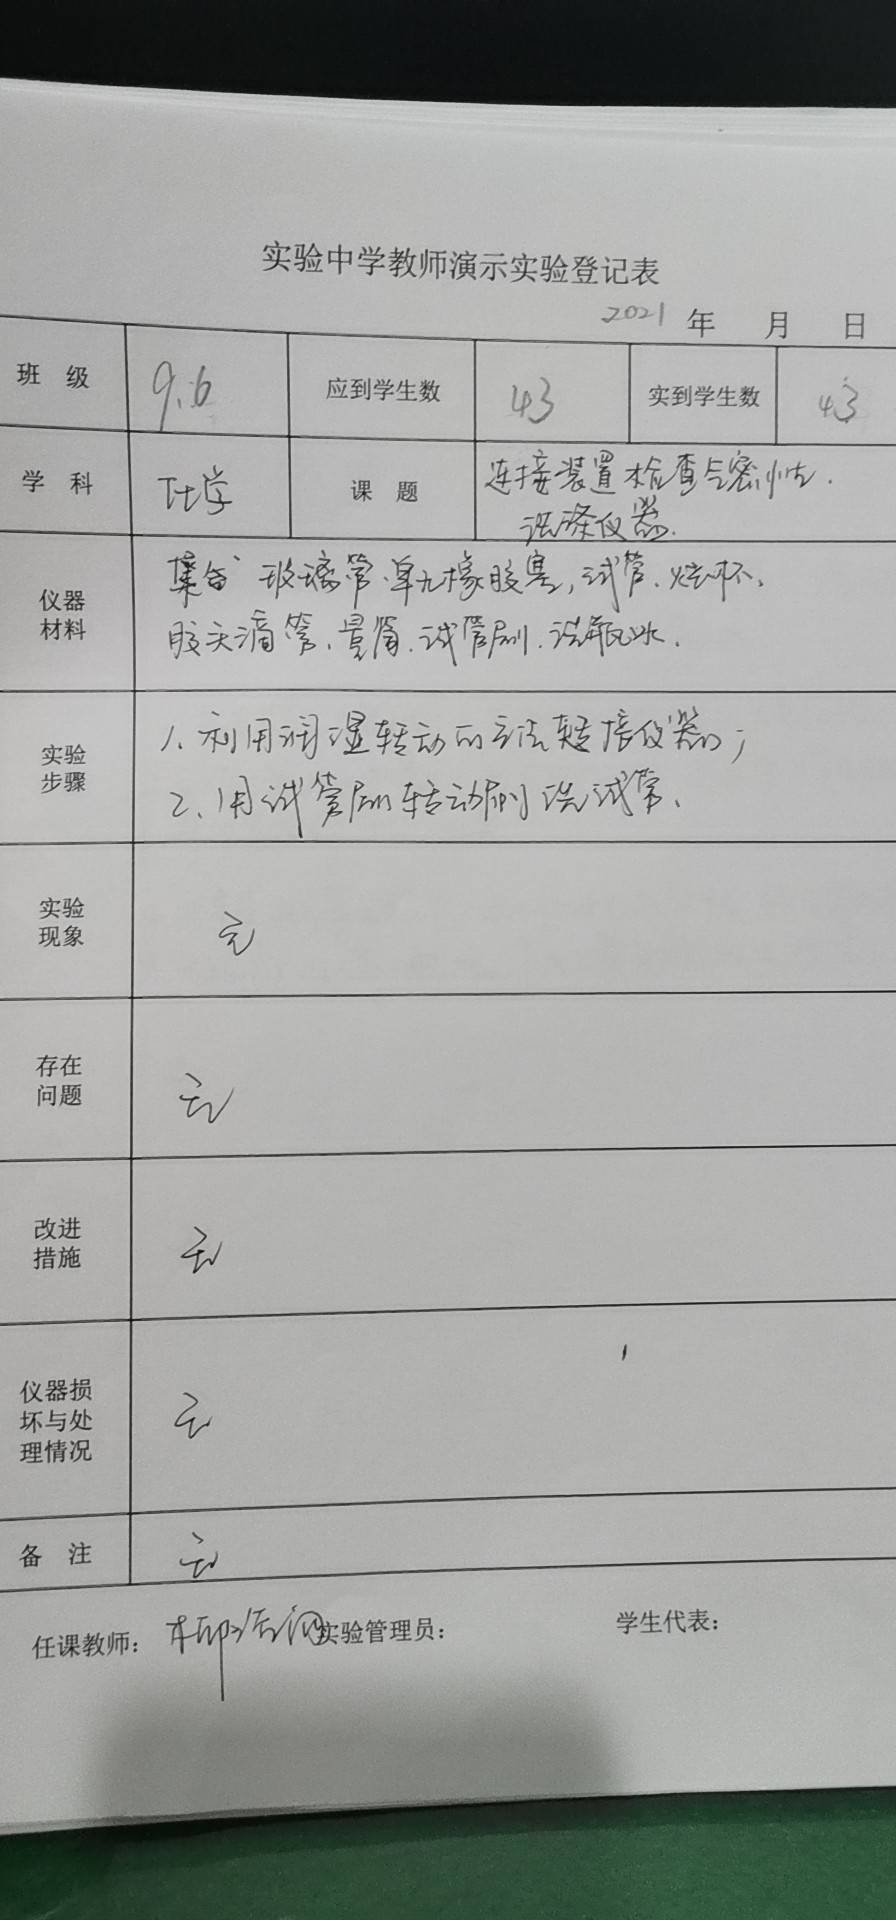 实验中学教师演示实验登记表
2021 年 月 日
班 级 9.6 应到学生数 43 实到学生数 43
学 科 化学 课 题 连接装置 检查气密性.
洗涤仪器.
仪器 玻璃管.单孔橡胶塞,试管.烧杯.
材料 胶头滴管.量筒.试管刷.洗瓶水.
实验 1.利用润湿转动的方法连接仪器;
步骤 2.用试管刷转动刷洗试管.
实验
现象 无
存在
问题 无
改进
措施 无
仪器损
坏与处 无
理情况
备 注 无
任课教师: 实验管理员: 学生代表: